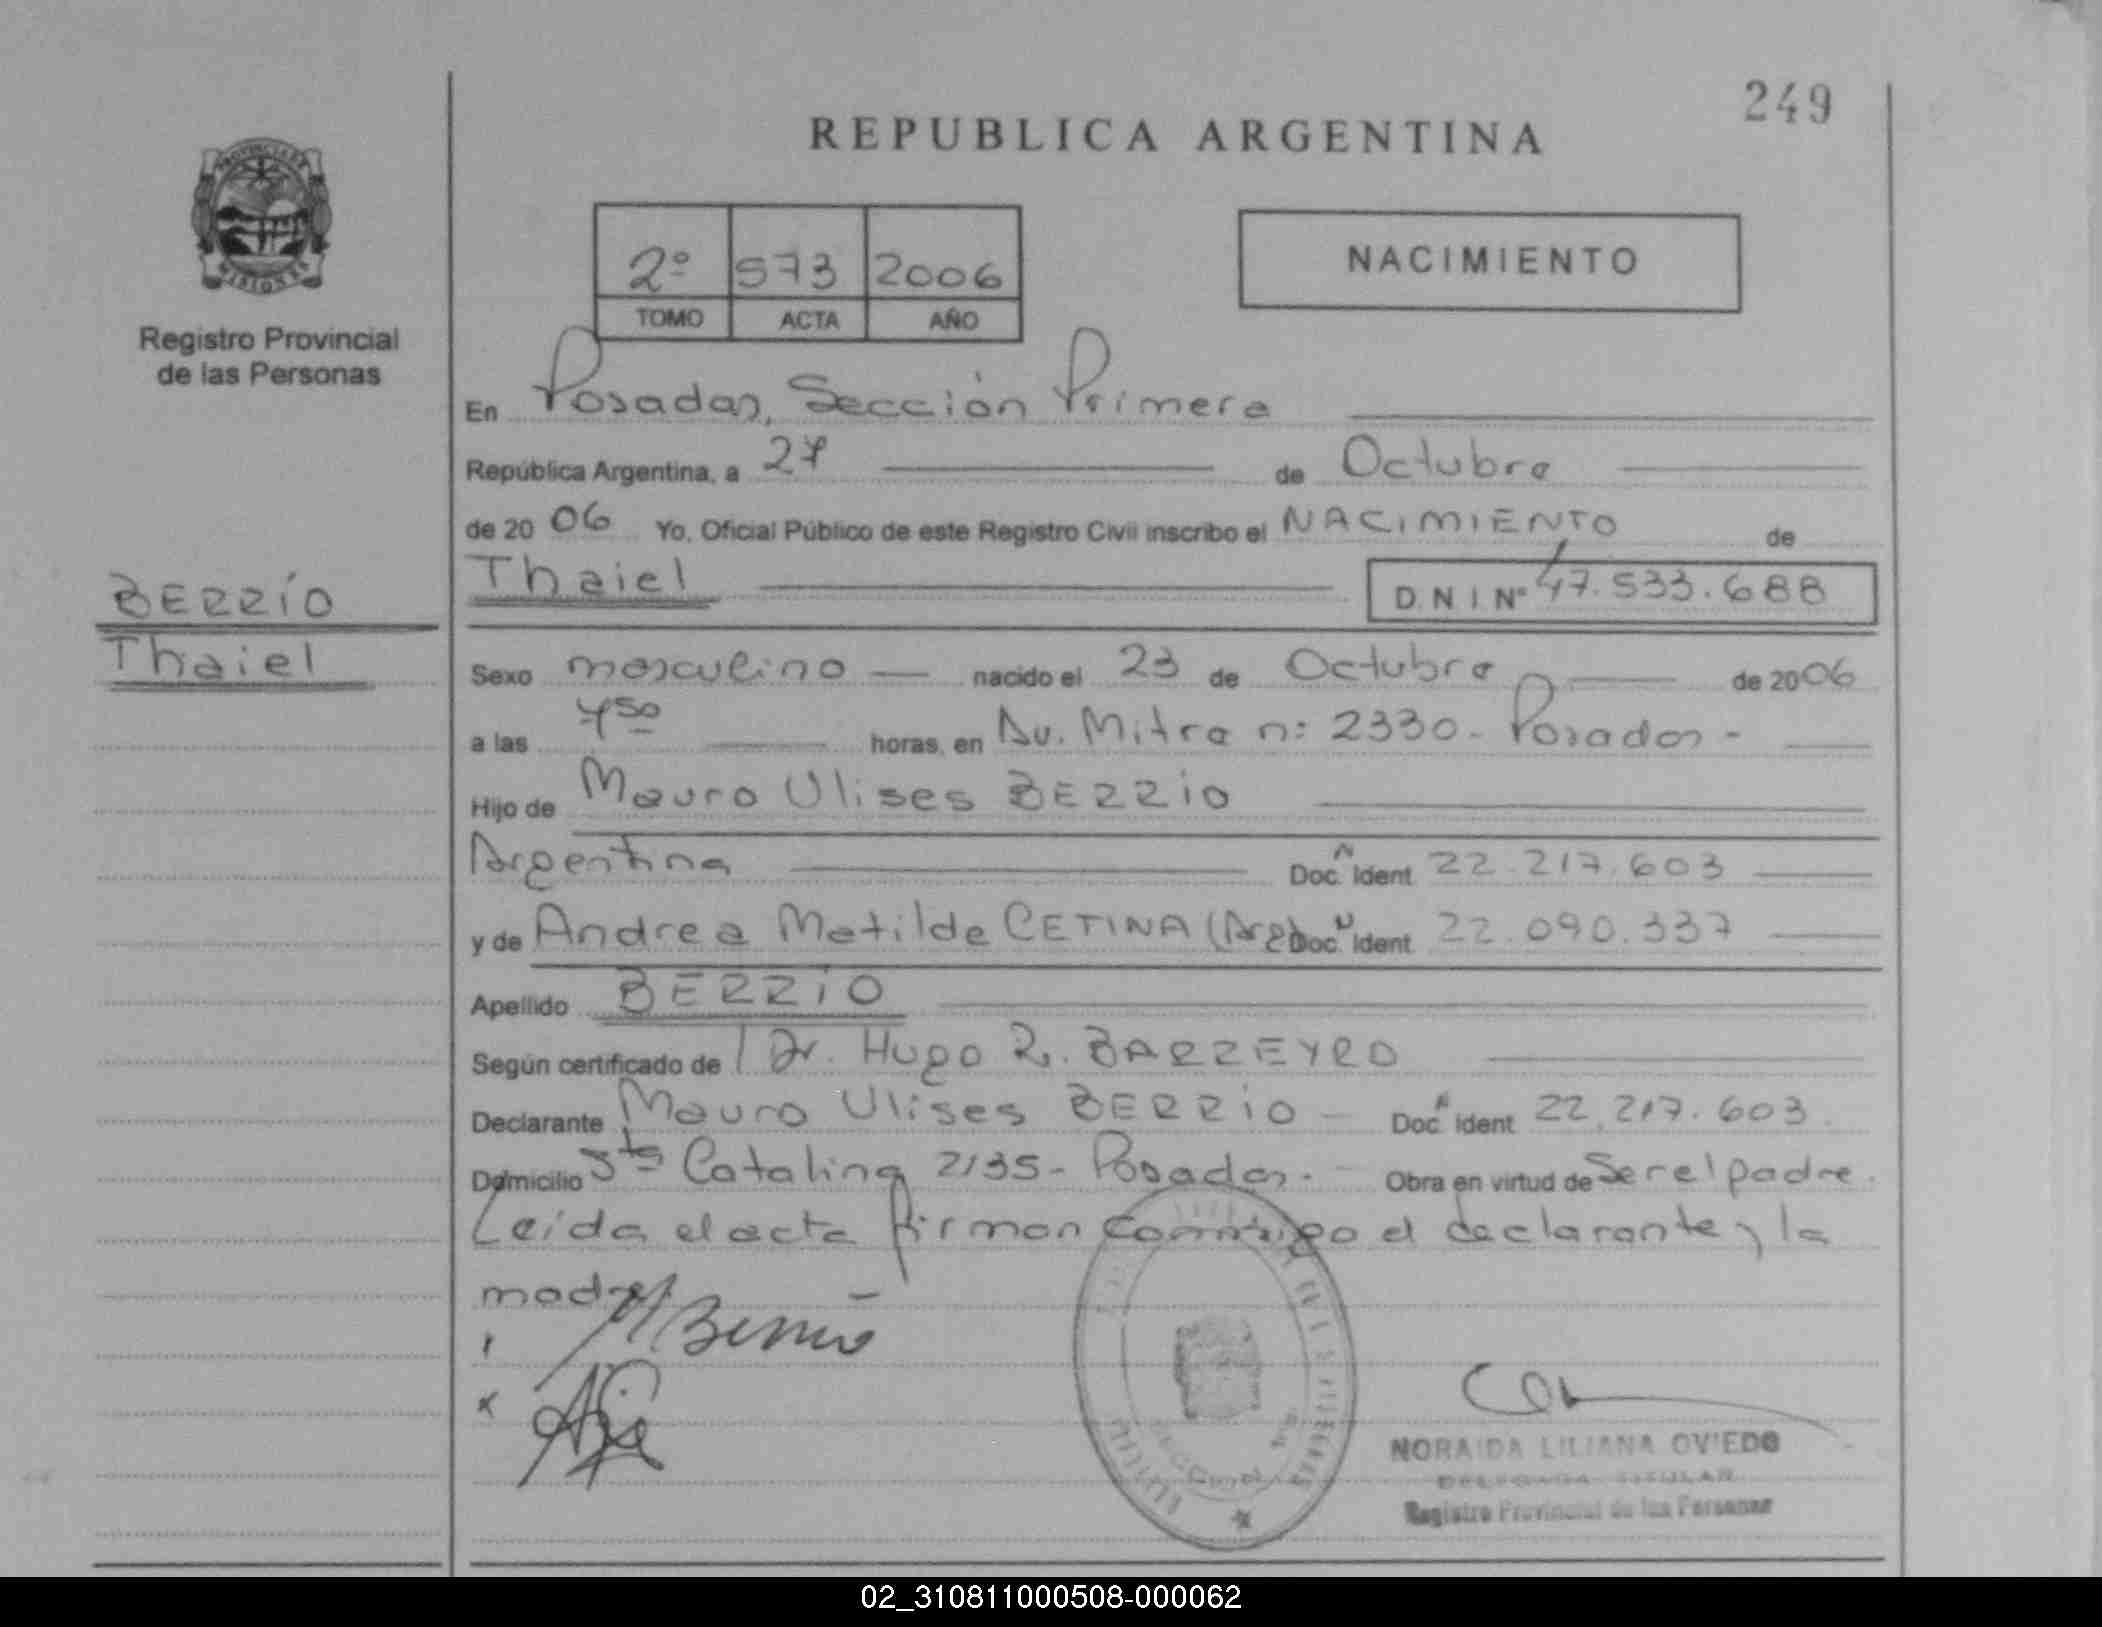 249
REPUBLICA ARGENTINA
PROVINCIA DE
MISIONES
Registro Provincial
de las Personas
2º 573 2006
TOMO ACTA AÑO
NACIMIENTO
En Posadas, Sección Primera
República Argentina, a 27 de Octubre
de 2006 Yo, Oficial Público de este Registro Civil inscribo el NACIMIENTO de
BERRÍO
Thaiel
Thaiel D.N.I Nº 47.533.688
Sexo masculino nacido el 23 de Octubre de 2006
a las 4⁵⁰ horas, en Av. Mitre n: 2330- Posadas-
Hijo de Mauro Ulises BERRÍO
Argentina Doc. N Ident 22.217.603
y de Andrea Matilde CETINA (Arg) Doc. N Ident 22.090.337
Apellido BERRÍO
Según certificado de Dr. Hugo R. BARREYRO
Declarante Mauro Ulises BERRÍO - Doc. N Ident 22.217.603
Domicilio Sta Catalina 2135- Posadas.- Obra en virtud de Ser el padre.
Leída el acta firman conmigo el declarante y la
madre
M Berrío
NORAIDA LILIANA OVIEDO
DELEGADA TITULAR
Registro Provincial de las Personas
02_310811000508-000062